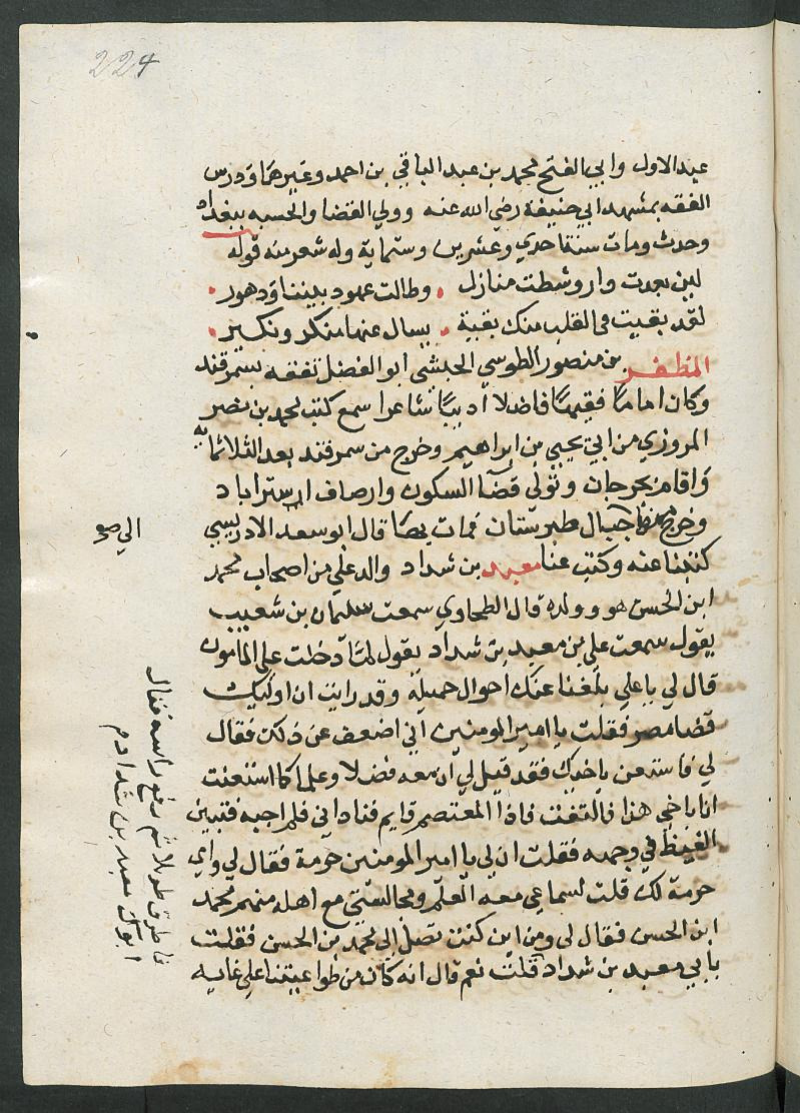 224
عبد الاول وابي الفتح محمد بن عبد الباقي بن احمد وغيرهما ودرس
الفقه بمشهد ابي حنيفة رضي الله عنه وولي القضا والحسبه ببغداد
وحدث ومات سنة احدي وعشرين وستماية وله شعر منه قوله
لين بعدت دار وشطت منازل وطالت عهود بيننا ودهور
لقد بقيت في القلب منك بقية يسال عنها منكر ونكير
المظفر بن منصور الطوسي الحبشي ابو الفضل تفقه بسمرقند
وكان اماما فقيها فاضلا أديبا شاعرا سمع كتب محمد بن نصر
المروزي من ابي يحيي بن ابراهيم وخرج من سمرقند بعد الثلاثمايه
واقام بجرجان وتولي قضا السكون وارصاف استراباد
وخرج منها جبال طبرستان فمات بها قال ابو سعد الادريسي
كتبنا عنه وكتب عنا معبد بن شداد والد علي من اصحاب محمد
ابن الحسن هو وولده قال الطحاوي سمعت سليمان بن شعيب
يقول سمعت علي بن معبد بن شداد يقول لما دخلت علي المامون
قال لي يا علي بلغنا عنك احوال جميلة وقد رايت ان اوليك
قضا مصر فقلت يا امير المومنين اني اضعف عن ذلك فقال
لي فاستعن باخيك فقد قيل لي ان معه فضلا وعلما كما استعنت
انا باخي هذا فالتفت فاذا المعتصم قايم فناداني فلم اجبه فتبين
الغيظ في وجهه فقلت ان لي يا امير المومنين حرمة فقال لي واي
حرمة لك قلت لسماعي معه العلم ومجالستي مع اهله منهم محمد
ابن الحسن فقال لي ومن اين كنت تصل الي محمد بن الحسن فقلت
بابي معبد بن شداد قلت نعم قال انه كان من طواعيتنا علي غايه
فاطرق طويلا ثم رفع راسه فقال
ابوك معبد بن شداد م